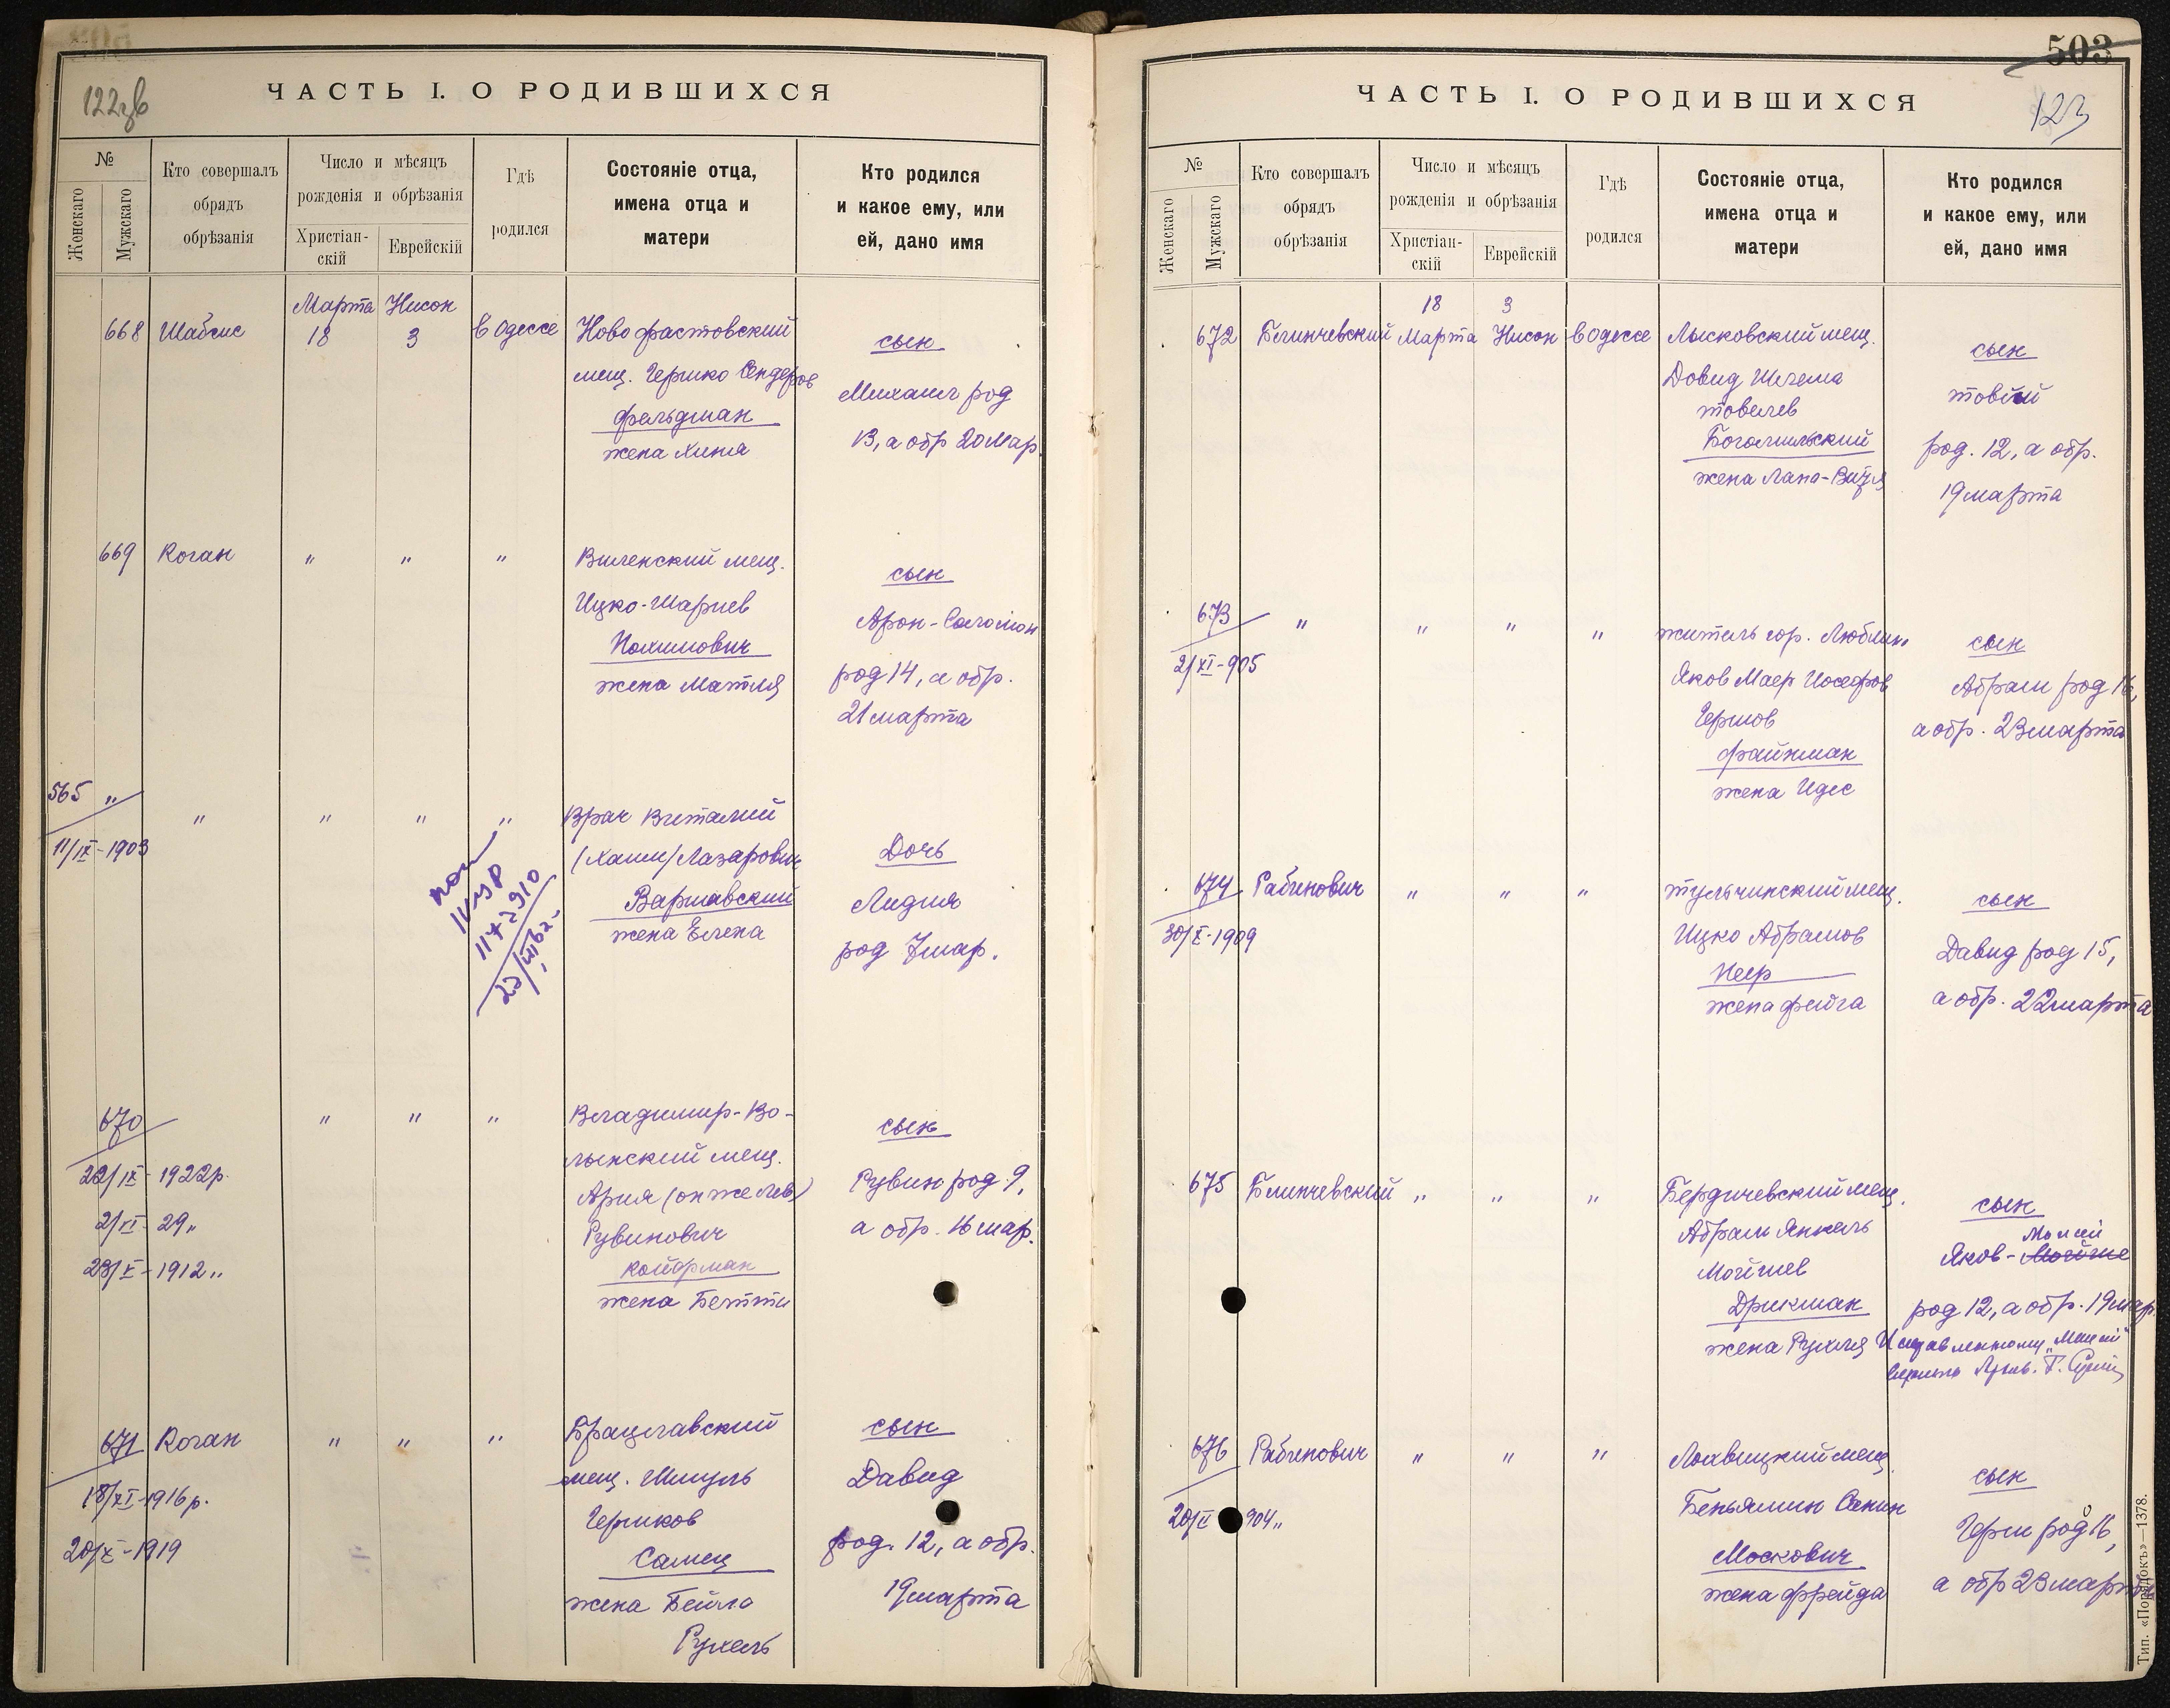 122зв
ЧАСТЬ I. О РОДИВШИХСЯ
№
Женскаго
Мужскаго
Кто совершалъ
обрядъ
обрѣзанія
Число и мѣсяцъ
рожденія и обрѣзанія
Христіан-
скій
Еврейскій
Гдѣ
родился
Состояніе отца,
имена отца и
матери
Кто родился
и какое ему, или
ей, дано имя
668 Шабсис
Марта
18
Нисон
3
в Одессе
Новофастовский
мещ. Гершко Сендеров
Фельдман
жена Хина
сын
Михаил род
13, а обр 20 мар.
669 Коган " " "
Виленский мещ.
Ицко-Шариев
жена Матля
сын
Арон-Соломон
род 14, а обр.
21 марта
565 "
11/IX-1903
" " " "
Врач Виталий
(Хаим) Лазарович
Варшавский
жена Елена
Дочь
Лидия
род 7 мар.
670
22/IX-1922р.
2/XI-29"
23/X-1912"
" " "
Владимир-Во-
лынский мещ.
Ария (он же Лев)
Рувинович
Койфман
жена Бетти
сын
Рувин род 9,
а обр. 16 мар.
671 Коган " " "
18/XI-1916р.
20/X-1919
Брацлавский
мещ. Шмуль
Гершков
Самец
жена Бейла
Рухель
сын
Давид
род. 12, а обр.
19 марта
503
123
ЧАСТЬ I. О РОДИВШИХСЯ
№
Женскаго
Мужскаго
Кто совершалъ
обрядъ
обрѣзанія
Число и мѣсяцъ
рожденія и обрѣзанія
Христіан-
скій
Еврейскій
Гдѣ
родился
Состояніе отца,
имена отца и
матери
Кто родился
и какое ему, или
ей, дано имя
672 Блинчевский
18
Марта
3
Нисон
в Одессе
Лысковский мещ.
Довид Шлема
Товелев
Богомильский
жена Лана-Витя
сын
Товий
род. 12, а обр.
19 марта
673
2/XI-905
" " " "
житель гор. Люблин
Яков Маер Иосефов
Гершов
Файнман
жена Идес
сын
Абрам род 16,
а обр. 23 марта
674 Рабинович " " "
30/X-1909
Тульчинский мещ.
Ицко Абрамов
жена Фейга
сын
Давид род 15,
а обр. 22 марта
675 Блинчевский " " "
Бердичевский мещ.
Абрам Янкель
Мойшев
Дрикман
жена Рухля
сын
Моисей
Яков-Мойше
род 12, а обр. 19 мар.
Исправленному „Моисей"
верить
676 Рабинович " " "
20/II 904"
Лохвицкий мещ.
Беньямин
Москович
жена Фрейда
сын
Герш род 16,
а обр 23 марта
Тип. «Порядокъ»—1378.